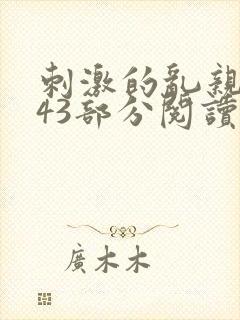 刺激的亂親
43部分閱讀
廣木木